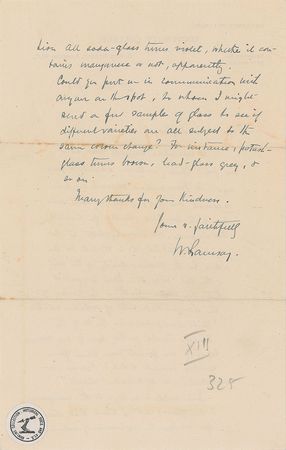 tion. All soda-glass turns violet, whether it con-
tains manganese or not, apparently.
Could you put me in communication with
anyone on the spot, to whom I might
send a few samples of glass to see if
different varieties are all subject to the
same colour change? For instance, potash-
glass turns brown, lead-glass grey, &
so on.
Many thanks for your kindness.
Yours v. faithfully
W. Ramsay
XIII
325